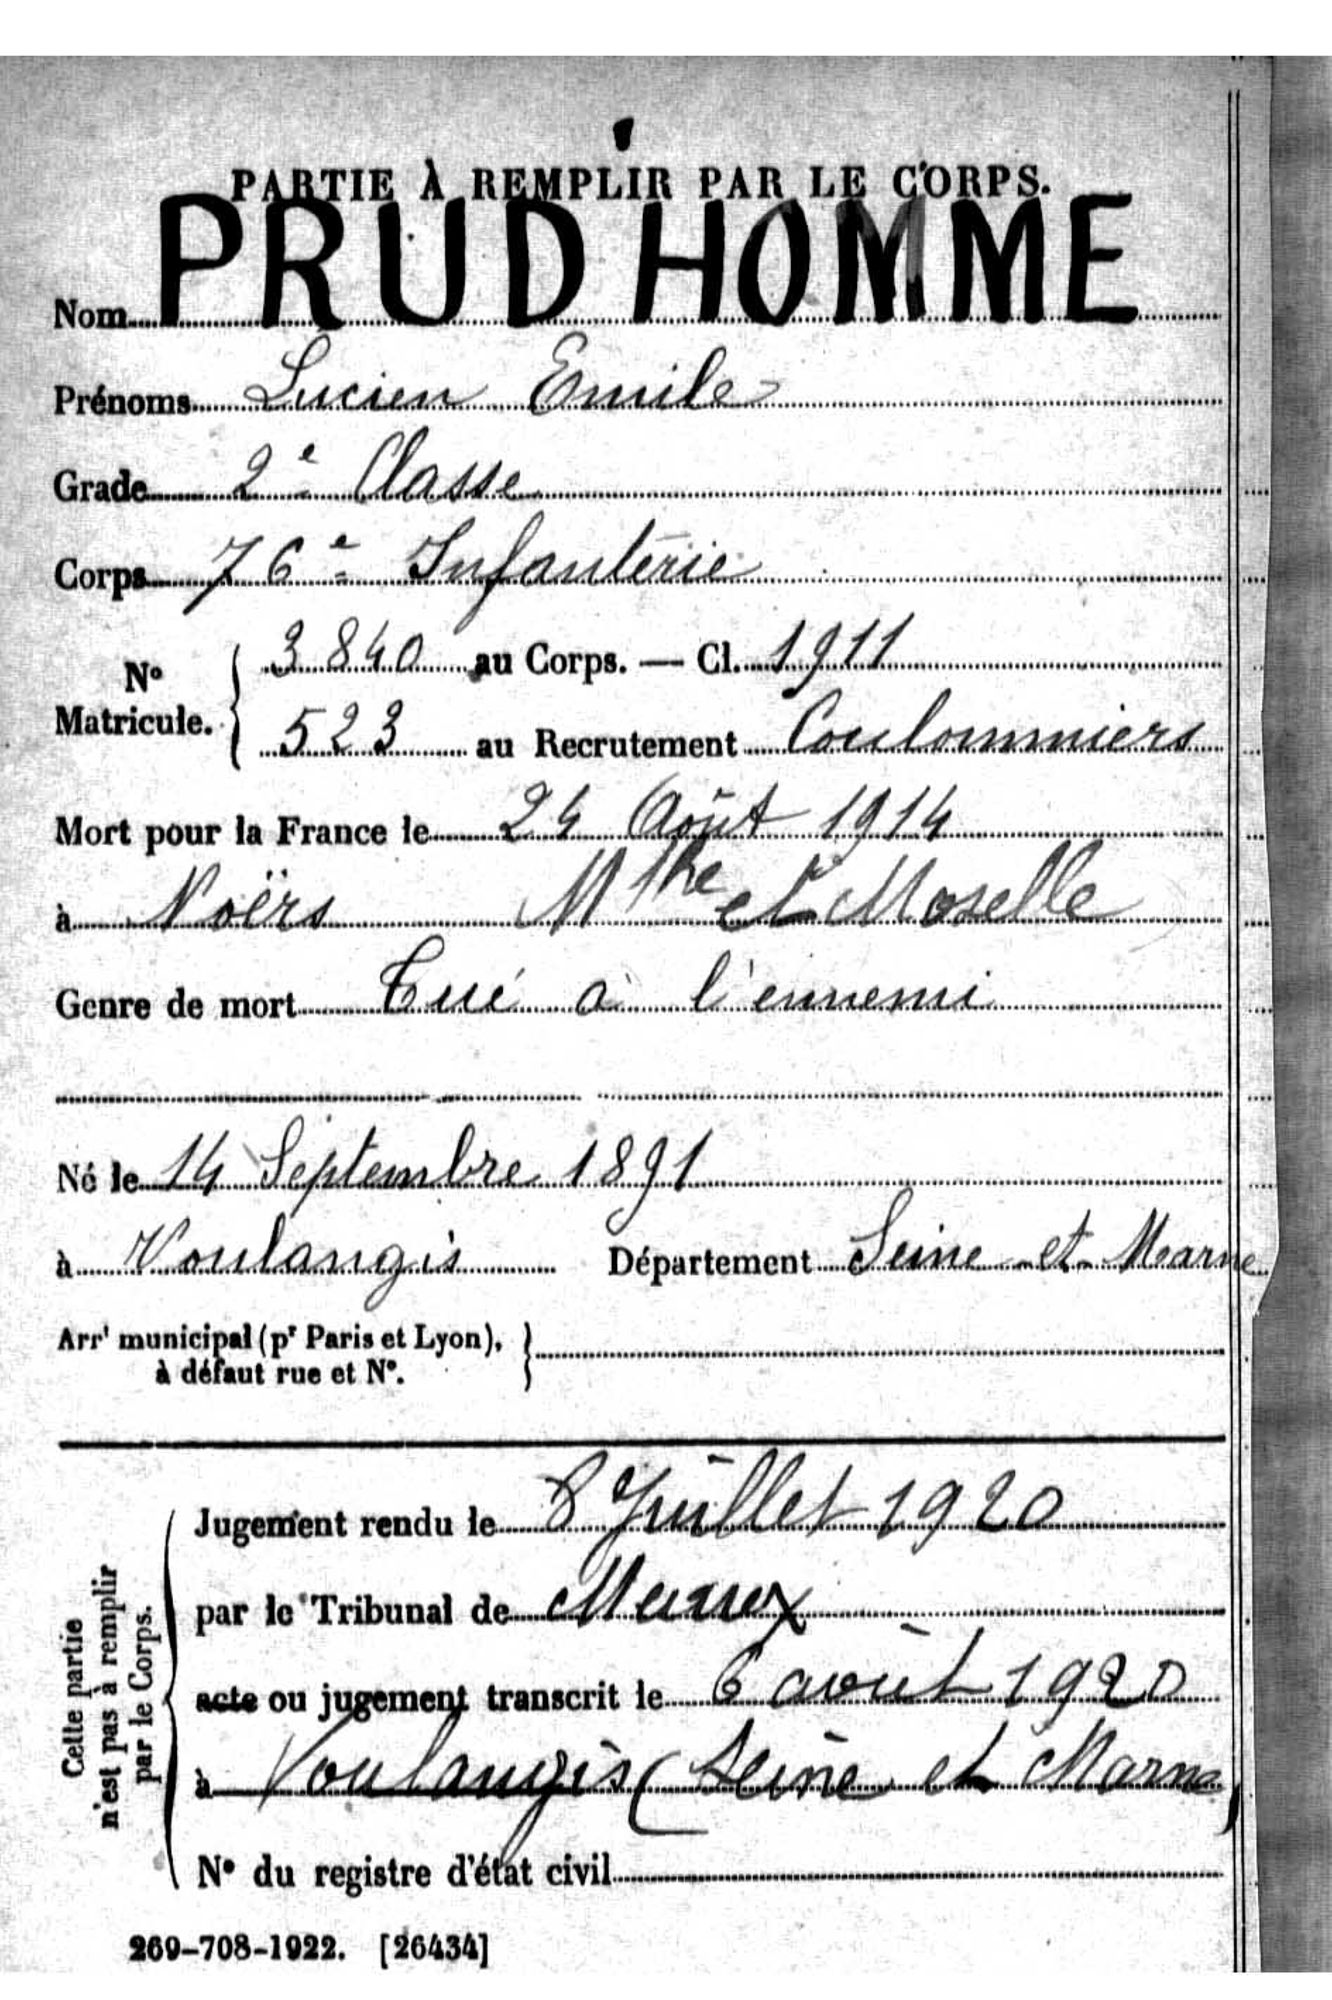 PARTIE À REMPLIR PAR LE CORPS.
Nom PRUD'HOMME
Prénoms Lucien Emile
Grade 2e Classe
Corps 76e Infanterie
No Matricule. { 3840 au Corps. — Cl. 1911
523 au Recrutement Coulommiers
Mort pour la France le 24 Août 1914
à Noërs Mthe et Moselle
Genre de mort Tué à l'ennemi
Né le 14 Septembre 1891
à Voulangis Département Seine-et-Marne
Arrt municipal (pr Paris et Lyon), }
à défaut rue et No.
Cette partie
n'est pas à remplir
par le Corps.
Jugement rendu le 8 Juillet 1920
par le Tribunal de Meaux
acte ou jugement transcrit le 6 août 1920
à Voulangis (Seine et Marne)
No du registre d'état civil
269-708-1922. [26434]